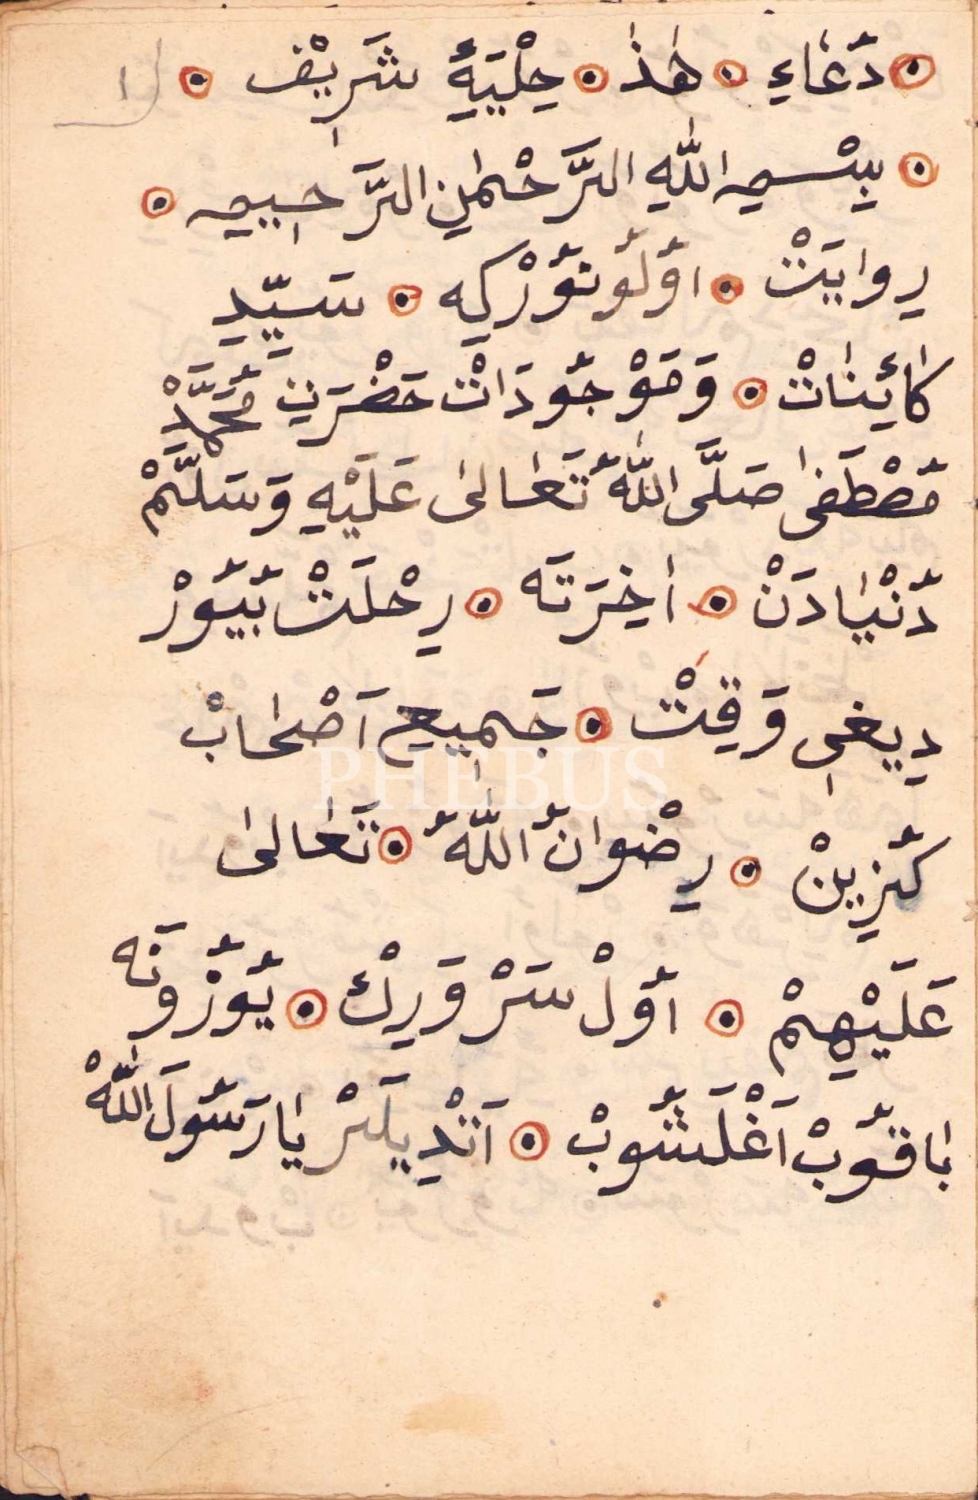 دُعٰاءِ هٰذٰا حِلْيَةِٔ شَرِيْف ١
بِسْمِ اللّٰهِ الرَّحْمٰنِ الرَّحِيمِ
رِوايَتْ اوُلُونُوْركِه سَيِّدِ
كٰائِنٰاتْ وَمَوْجُودَاتْ حَضْرَتِ مُحَمَّدْ
مُصْطَفٰى صَلَّى اللّٰهُ تَعٰالىٰ عَلَيْهِ وَسَلَّمْ
دُنْيٰادَنْ اخِرَتَه رِحْلَتْ بُيُوْر
دِيغىِ وَقِتْ جَمِيعِ اَصْحٰابْ
كُزِينْ رِضْوانُ اللّٰهُ تَعٰالىٰ
عَلَيْهِمْ اوُلْ سَرْوَرِكْ يُوُزُونَه
بٰاقُوبْ اَغْلَشُوبْ اَتْدِيلَرْ يٰارَسُولَ اللّٰهْ
PHEBUS